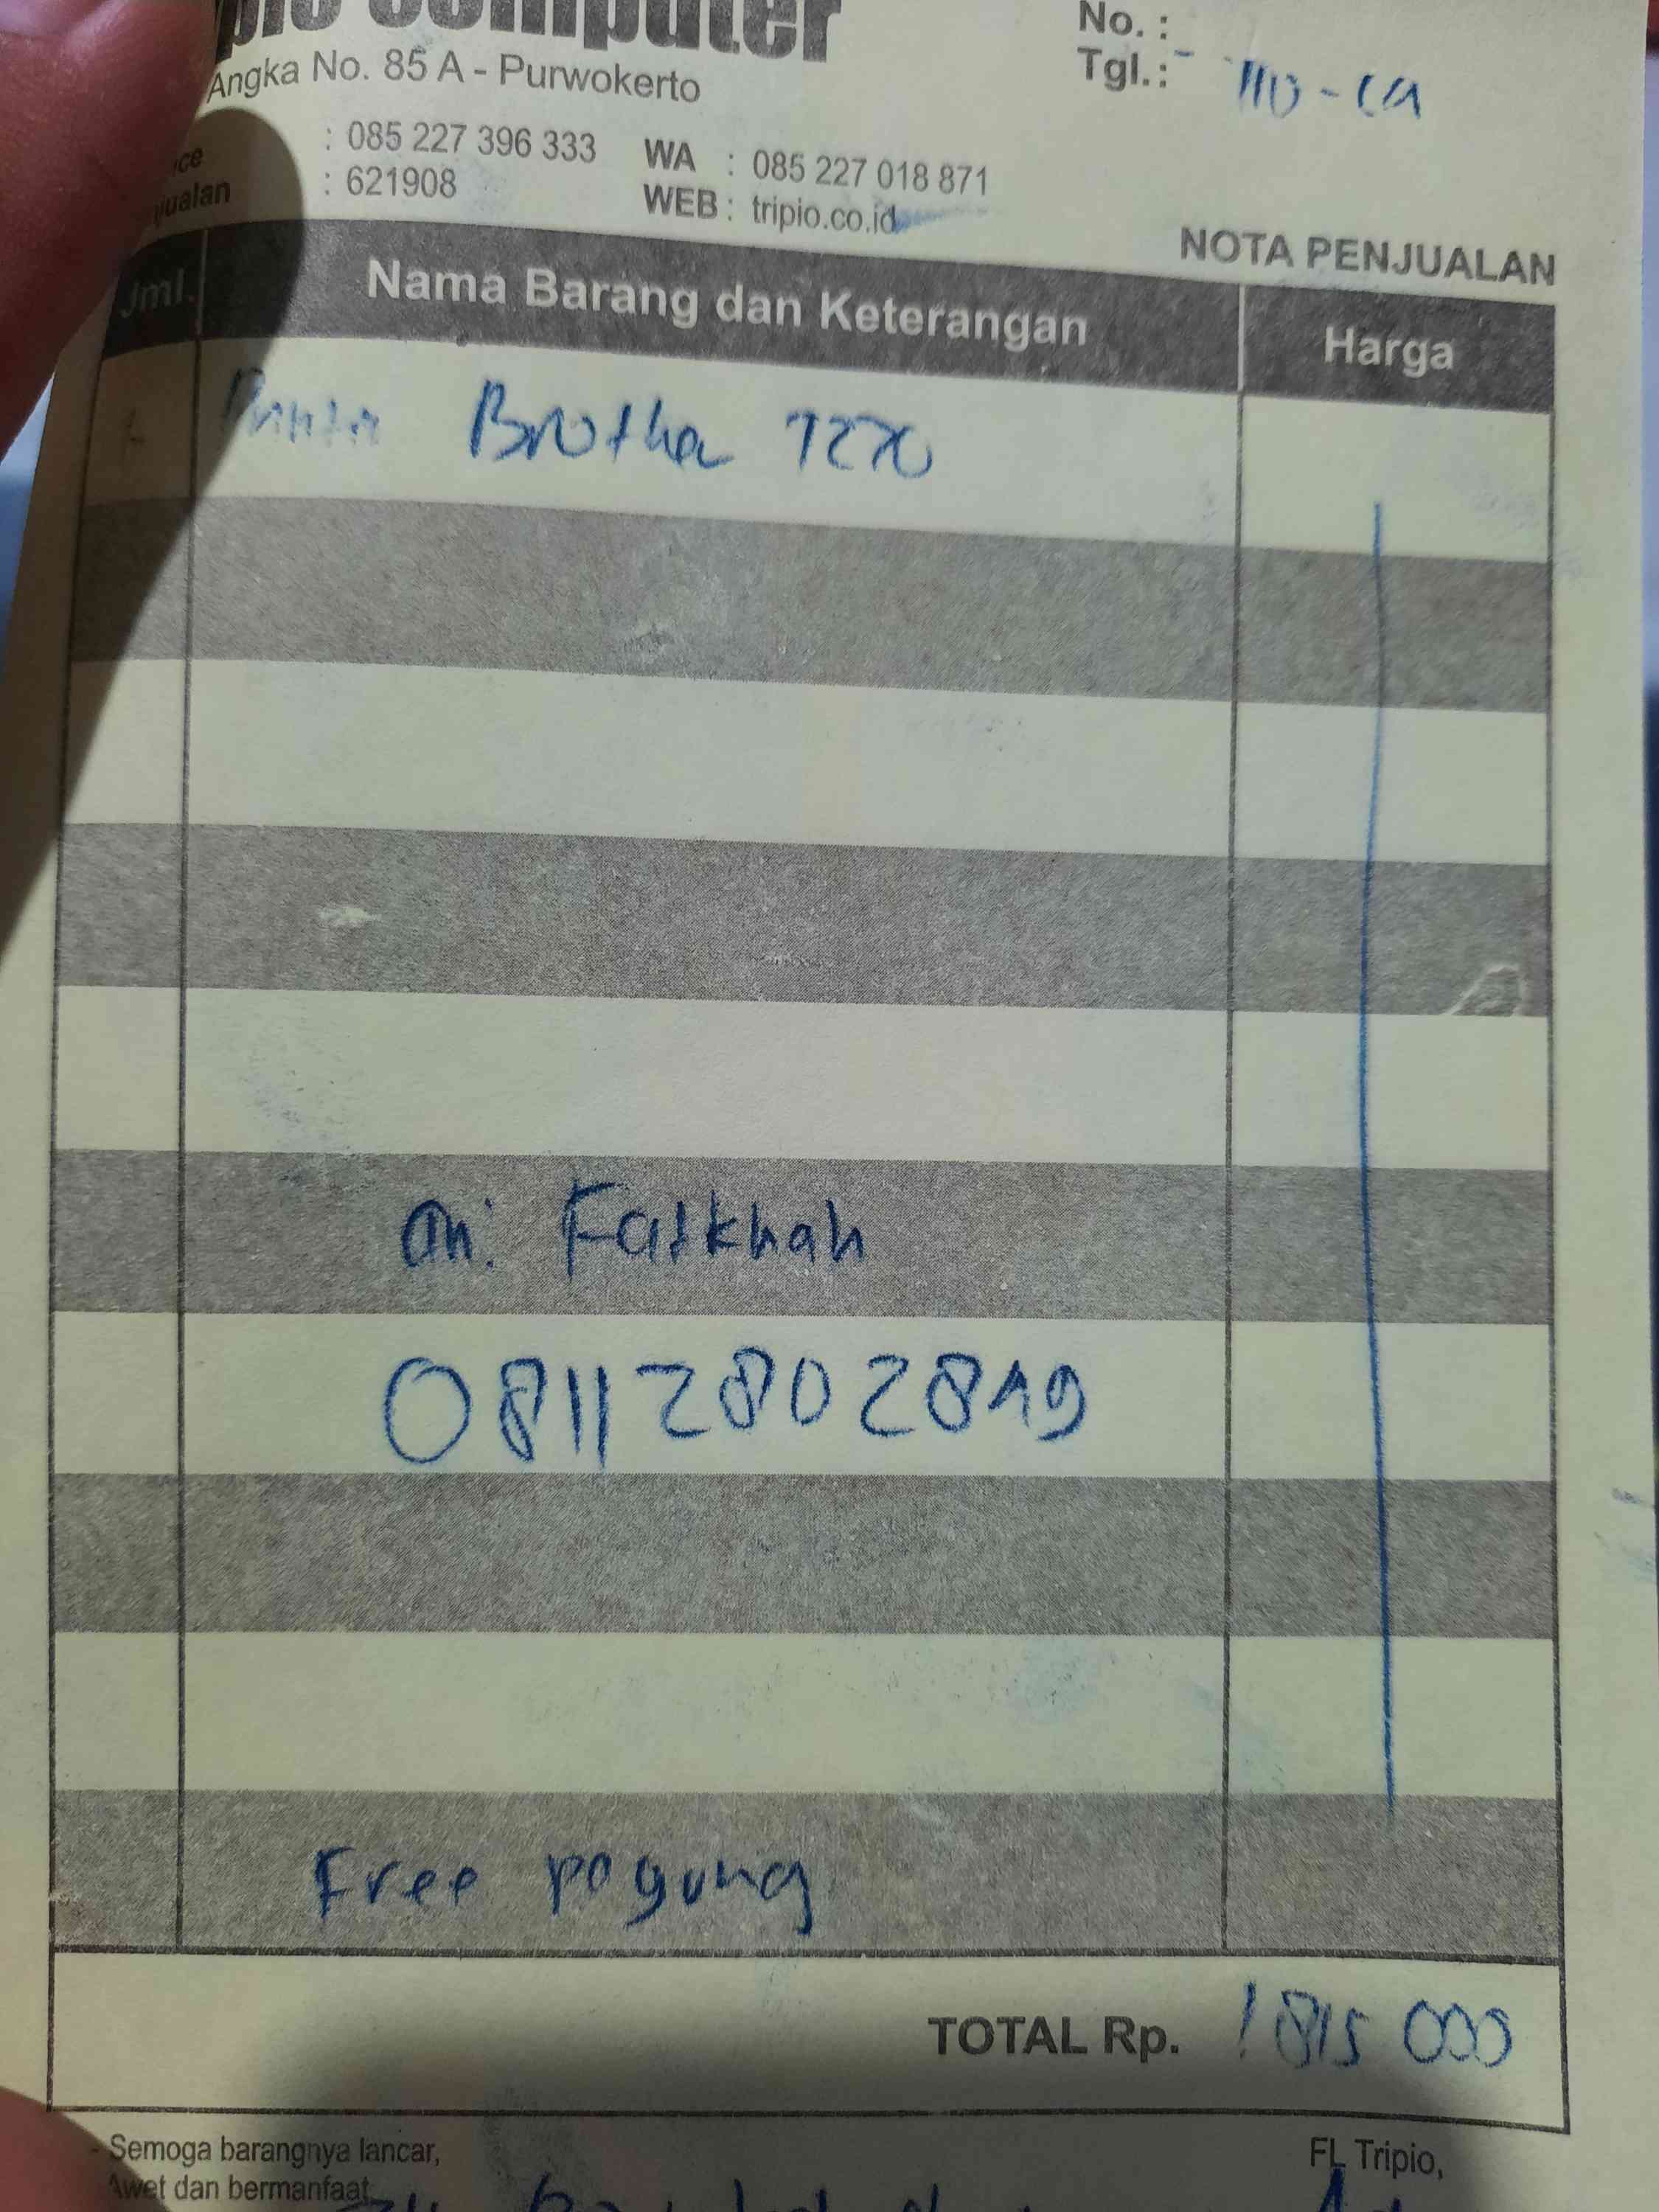 Computer
No. :
Angka No. 85 A - Purwokerto
Tgl. :
: 085 227 396 333 WA : 085 227 018 871
: 621908 WEB : tripio.co.id
NOTA PENJUALAN
Jml. Nama Barang dan Keterangan Harga
Brother
an: Faikhah
08112802819
Free pagung
TOTAL Rp. 1 815 000
Semoga barangnya lancar, FL Tripio,
Awet dan bermanfaat